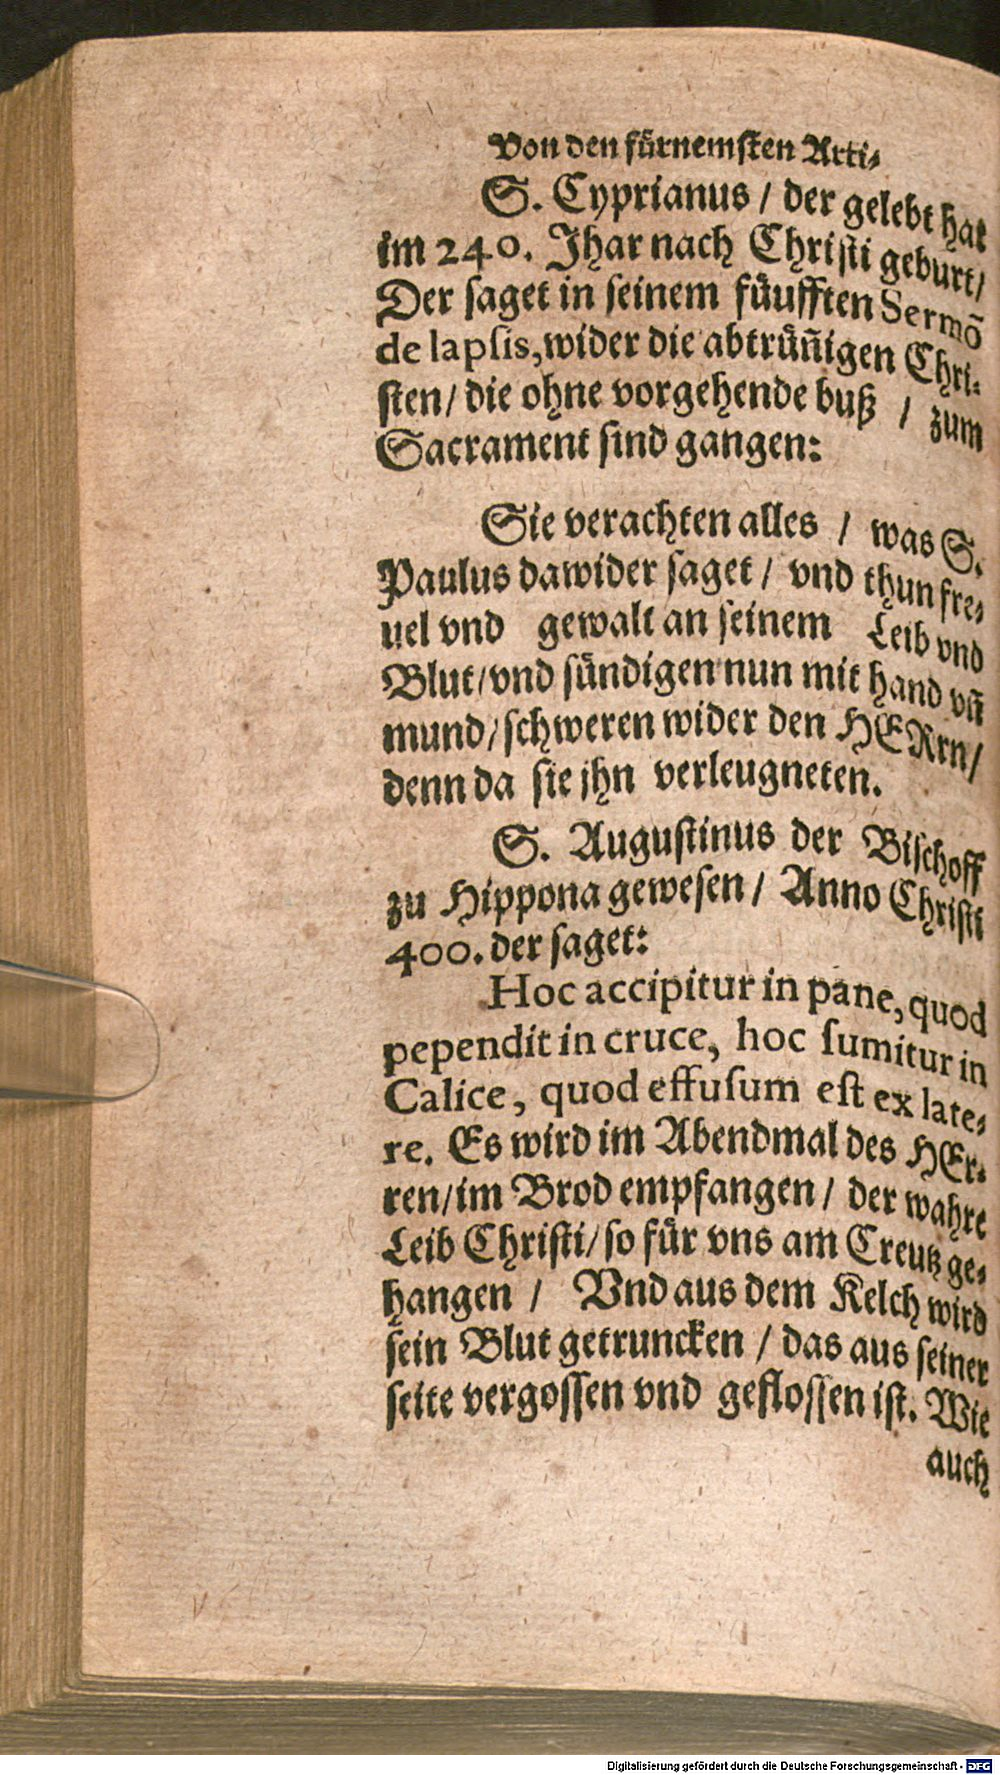 Von den fürnemſten Arti⸗
S. Cyprianus / der gelebt hat
im 240. Jhar nach Chriſti geburt /
Der ſaget in ſeinem füufften Sermõ
de lapſis, wider die abtrüñigen Chri⸗
ſten / die ohne vorgehende buß / zum
Sacrament ſind gangen:
Sie verachten alles / was S.
Paulus dawider ſaget / vnd thun fre⸗
uel vnd gewalt an ſeinem Leib vnd
Blut / vnd ſündigen nun mit hand vñ
mund / ſchweren wider den HERrn /
denn da ſie jhn verleugneten.
S. Auguſtinus der Biſchoff
zu Hippona geweſen / Anno Chriſti
400. der ſaget:
Hoc accipitur in pane, quod
pependit in cruce, hoc ſumitur in
Calice, quod effuſum eſt ex late⸗
re. Es wird im Abendmal des HEr⸗
ren / im Brod empfangen / der wahre
Leib Chriſti / ſo für vns am Creutz ge⸗
hangen / Vnd aus dem Kelch wird
ſein Blut getruncken / das aus ſeiner
ſeite vergoſſen vnd gefloſſen iſt. Wie
auch
Digitalisierung gefördert durch die Deutsche Forschungsgemeinschaft - DFG